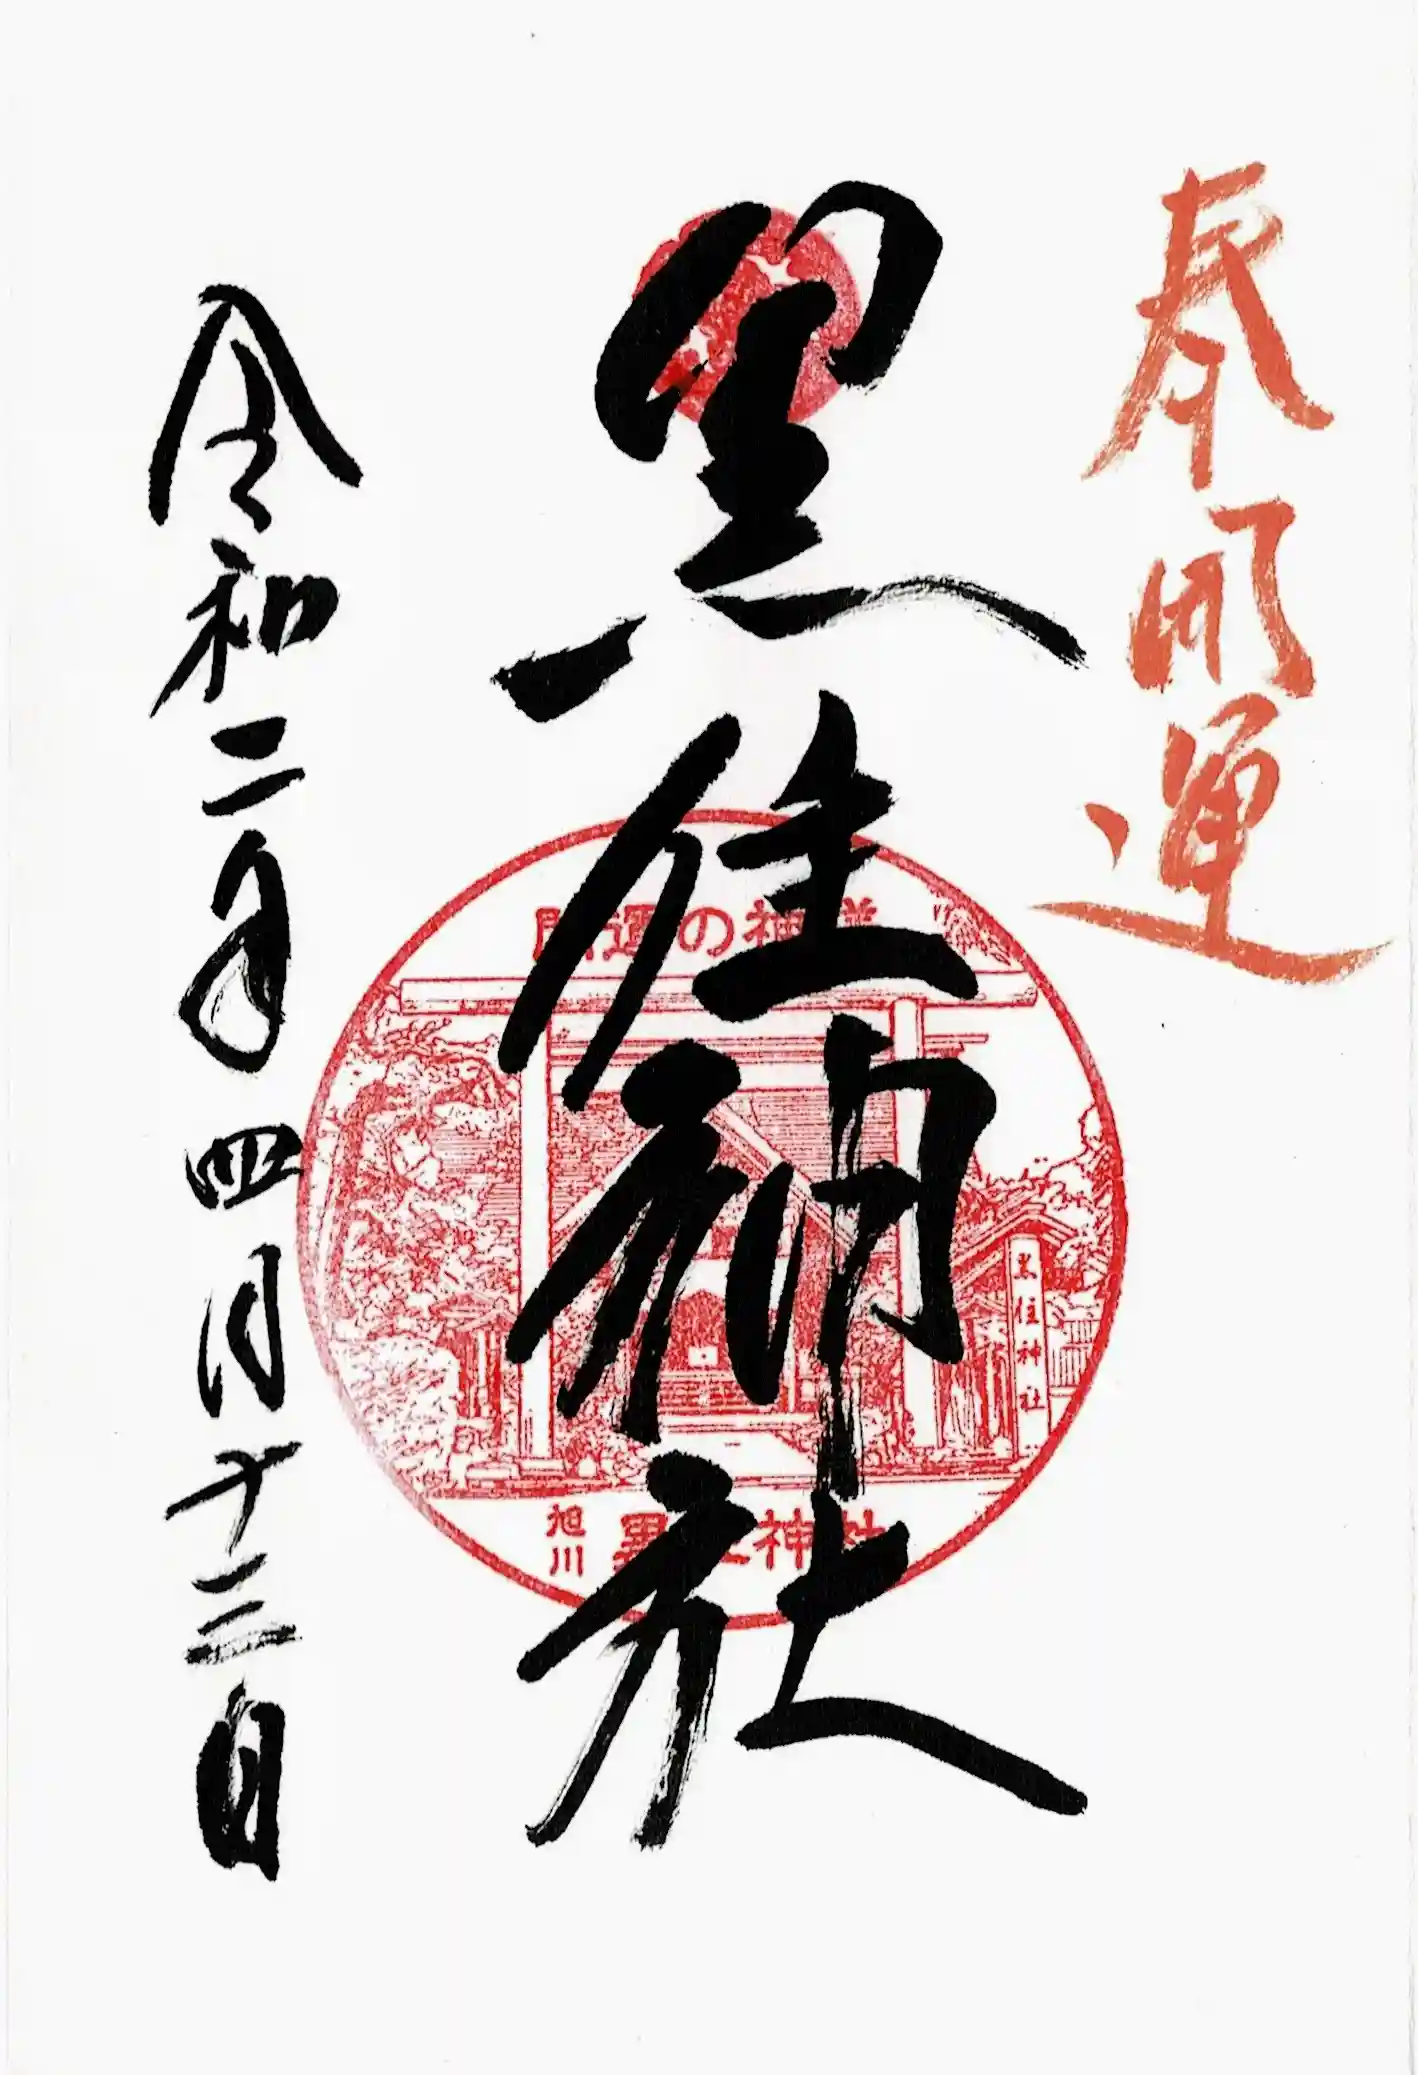 奉開運
黒住神社
開運の神様
黒住神社
旭川
黒住神社
令和二年四月十三日